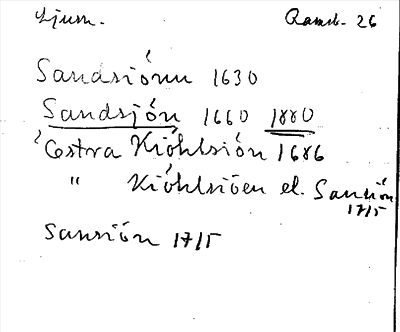 Ljusn. Ramb. 26
Sandsiónn 1630
Sandsjón 1660 1880
Óestra Kióhlsión 1686
" Kióhlsióen el. Sansión
1715
Sansión 1715